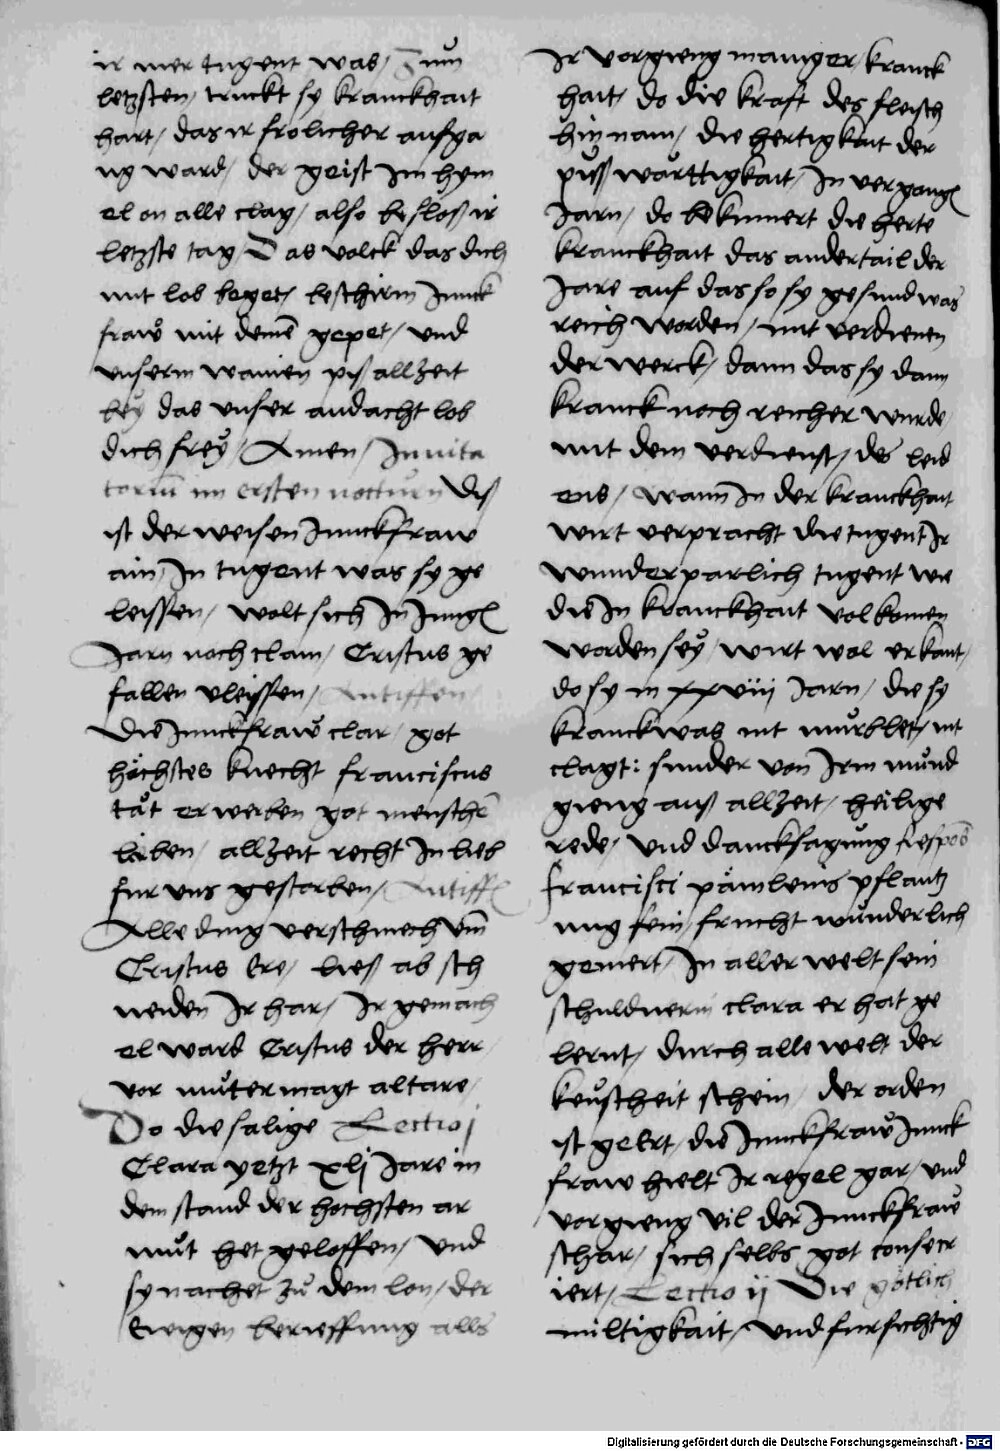 ir mer tugent was / Zum
letzsten / truckt sy kranckhait
hart / das ir frolicher aufga
ng ward / der geist Im hym
el on alle clag / also beslosß ir
letzste tag / Das volck das dich
mit lob beget / beschirm Junck
fraw mit deinē gepet / und
unserm wainen pis allzeit
bey das unser andacht lob
dich frey / Amen / Inuita
toriū im ersten nocturn Dis
ist der weisen Junckfraw
ain / In tugent was sy ge
leissen / wolt sich In Jungē
Jarn noch clain / Cristus ge
fallen vleissen / Antiffen
Die Junckfraw clar / got
höchstes knecht franciscus
tät erwerben got menschē
lieben / allzeit recht In lieb
fur uns gestorben / Antiffē
Alle ding verschmech um
Cristus Ere / lies ab sch
neiden Ir har / Ir gemach
el ward Cristus der herr
vor mütermagt altare /
Do die salige Lectio j
Clara yetzt xlj Jare in
dem stand der hochsten ar
müt het geloffen / und
sy nachet zů dem lon / der
Ewigen berueffung alls
Ir vorgieng maniger / kranck
hait / do die kraft des fleisch
hin nam / die hertigkait der
püss warttigkait / In vergangē
Jarn / do bekumert die herte
kranckhait das andertail der
Jare auf das so sy gesund was
reich worden / mit verdienen
der werck / dann das sy dann
kranck noch reicher wurde
mit dem verdienst / des leid
ens / wann In der kranckhait
wirt verpracht die tugent Ir
wunderparlich tugent wie
die In kranckhait volkomen
worden sey / wirt wol erkant /
do sy in xxviij Jarn / die sy
kranck was nit murblet / nit
clagt: sunder von Irm mund
gieng aus allzeit / heilige
rede / und dancksagung Respōs
francisci pämleins pflantz
ung fein / frucht wunderlich
gemert / In aller welt sein
schuldnerin clara er hat ge
lernt / durch alle welt der
keuscheit schein / der orden
ist geert / die Junckfraw Junck
fraw hielt Ir regel gar / und
vorgieng vil der Junckfraw
schar / sich selbs got consecr
iert / Lectio ij Die götlich
miltigkait / und fursichtig
Digitalisierung gefördert durch die Deutsche Forschungsgemeinschaft - DFG